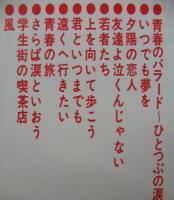 ●青春のバラード～ひとつぶの涙
●いつでも夢を
●夕陽の恋人
●友達よ泣くんじゃない
●若者たち
●上を向いて歩こう
●君といつまでも
●遠くへ行きたい
●青春の旅
●さらば涙といおう
●学生街の喫茶店
●風